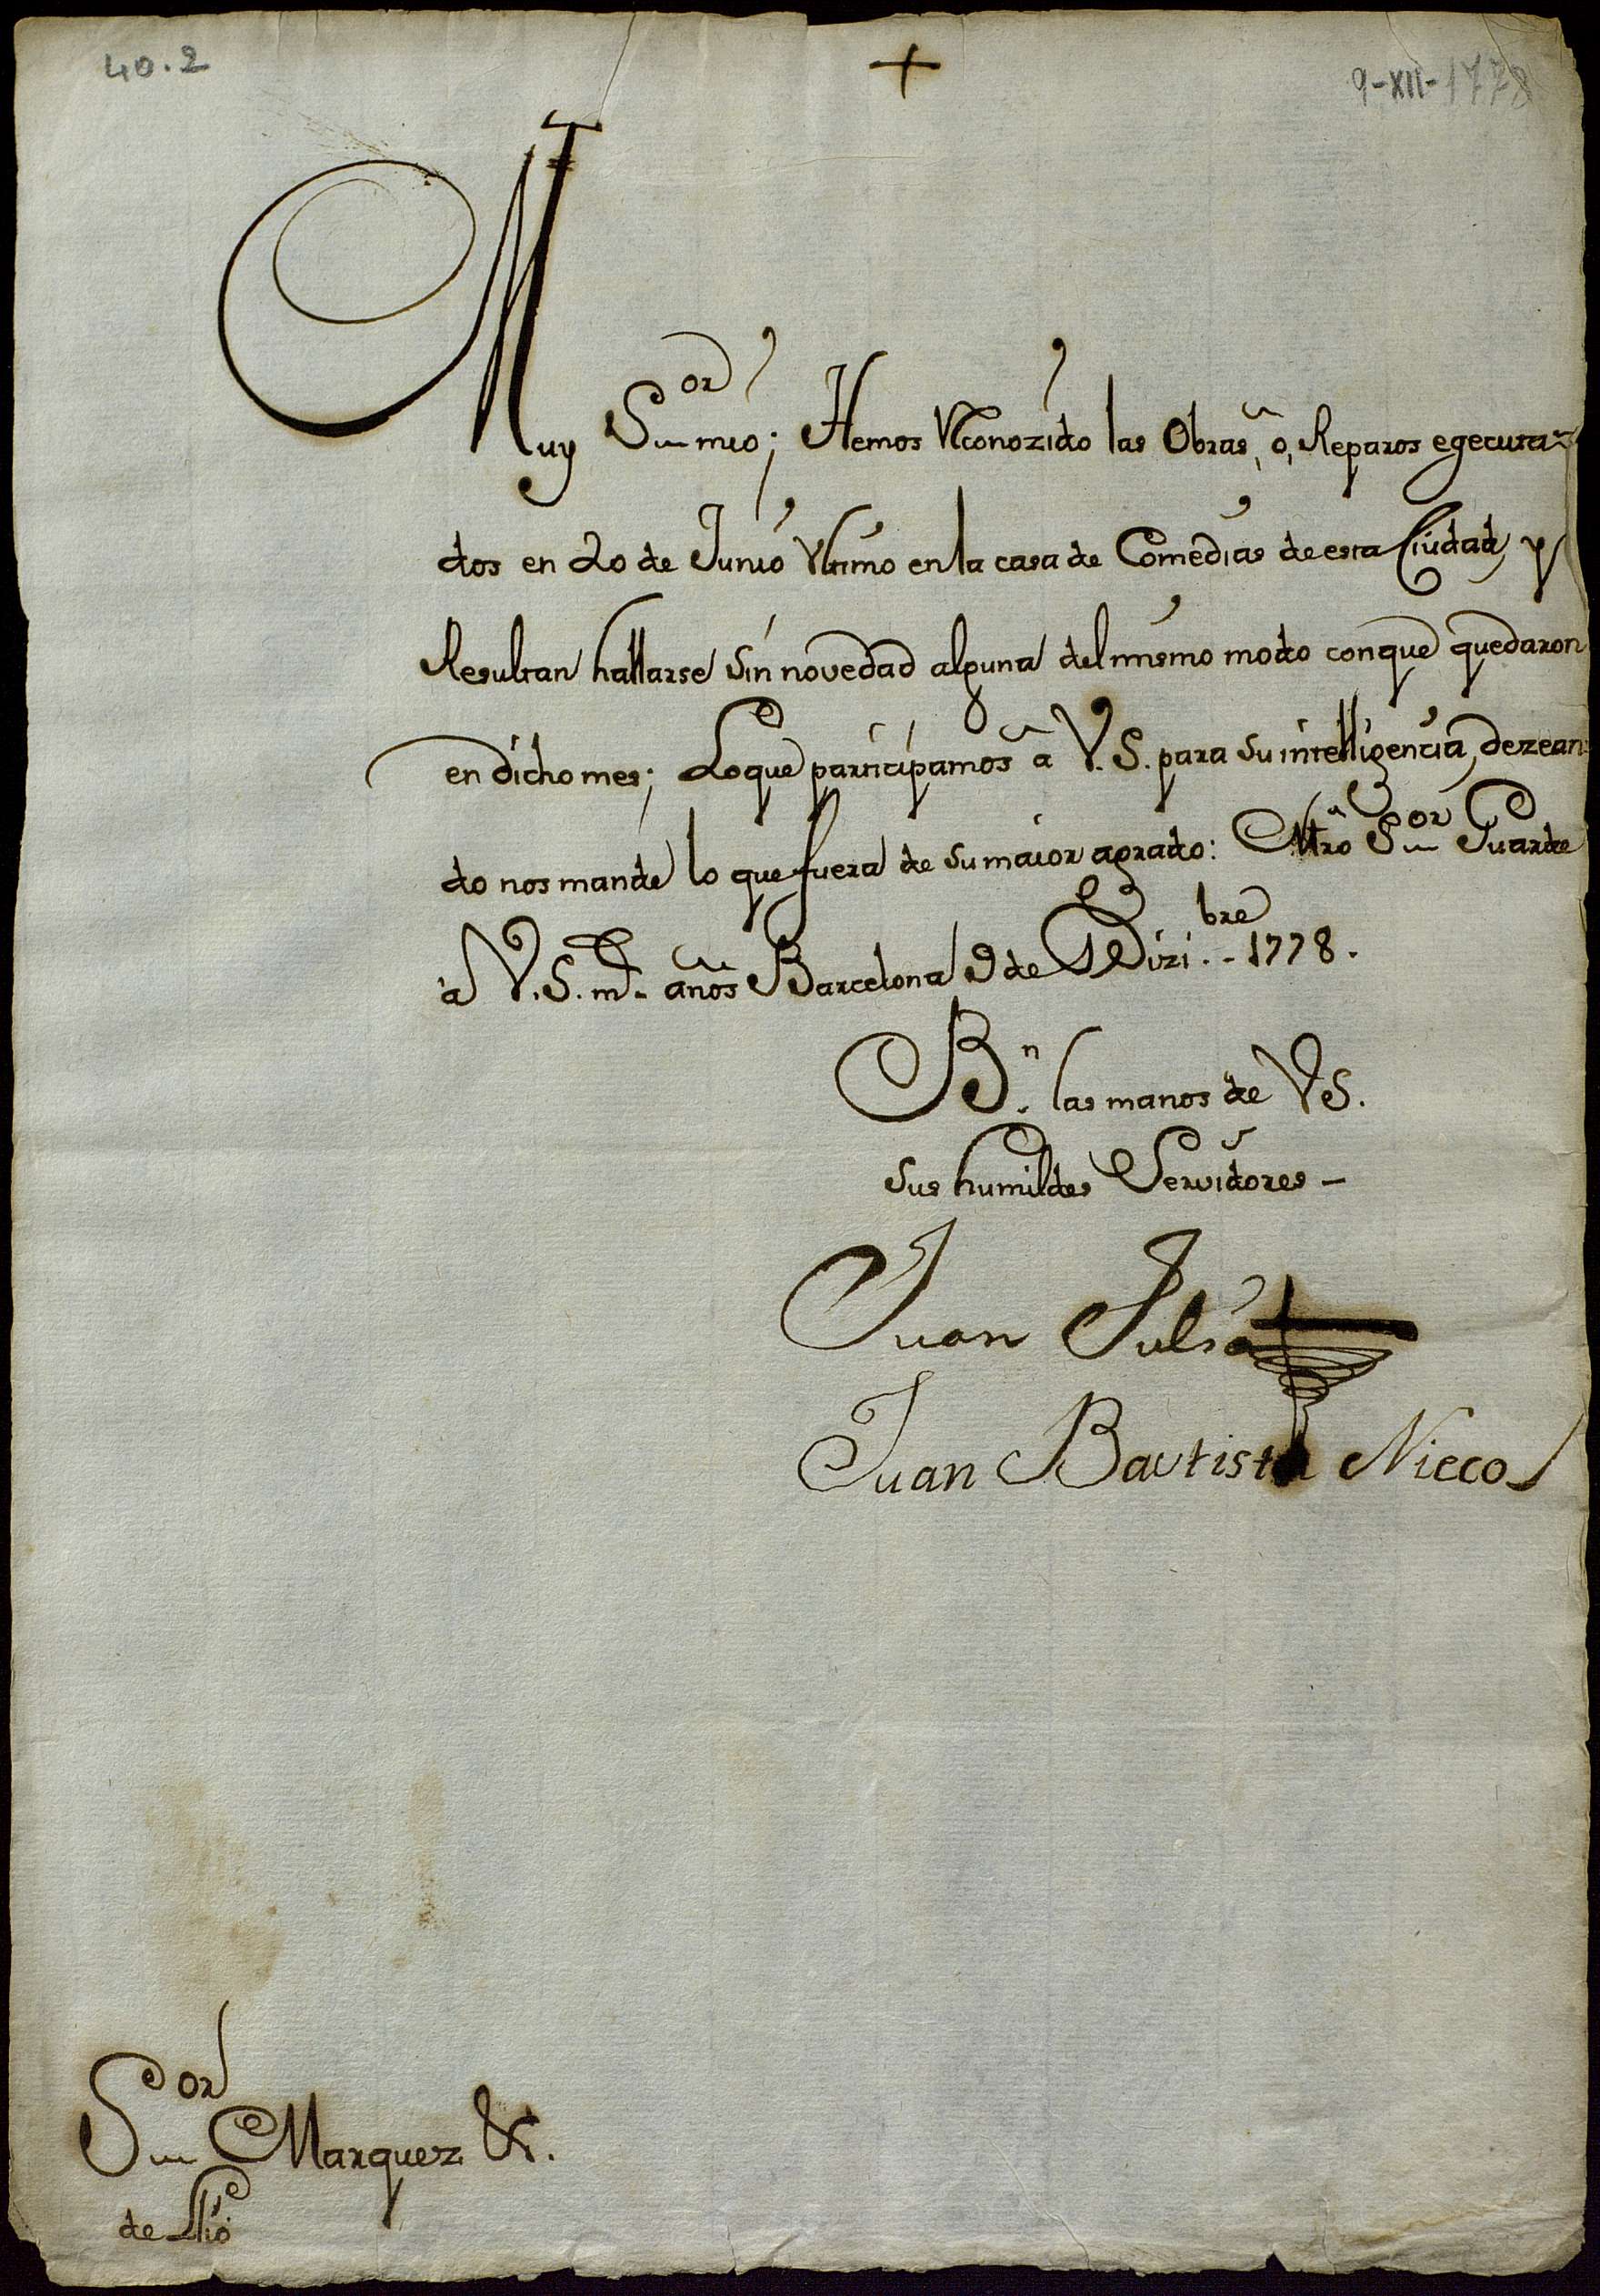 40.2
+
9-XII-1778
Muy Sor mio; Hemos Reconozido las Obras, o, Reparos egecuta-
dos en 20 de Junio Ultimo en la casa de Comedias de esta Ciudad, y
Resultan hallarse sin novedad alguna del mismo modo conque quedaron
en dicho mes; Loque participamos a V.S. para su intelligencia, dezean-
do nos mande lo que fuera de su maior agrado: Ntro Sor Guarde
a V.S. ms. años Barcelona 9 de Dizibre 1778.
Bn. las manos de VS.
sus humildes Servidores -
Juan Julia
Juan Bautista Nicco
Sor Marquez &.
de Llió